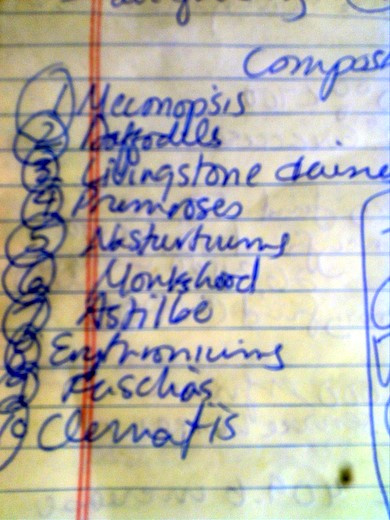 Compas
1 Meconopsis
2 Daffodils
3 Livingstone daine
4 Primroses
5 Nasturtiums
6 Monkshood
7 Astilbe
8 Erythroniums
9 Fuschias
10 Clematis